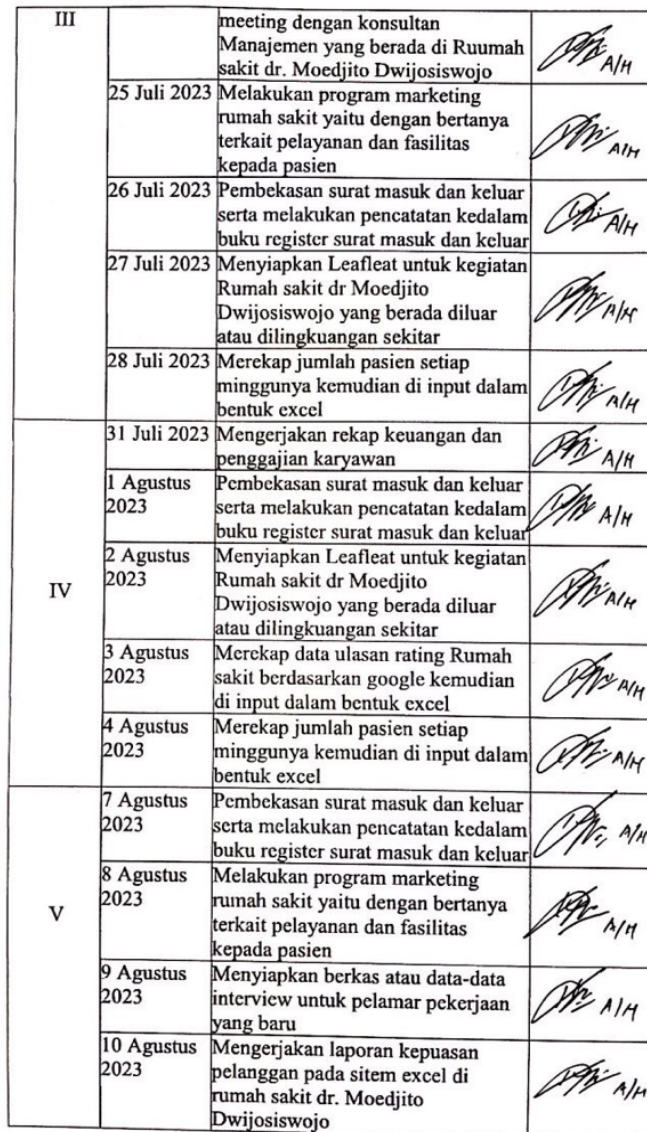 III
meeting dengan konsultan
Manajemen yang berada di Ruumah
sakit dr. Moedjito Dwijosiswojo
A/H
25 Juli 2023
Melakukan program marketing
rumah sakit yaitu dengan bertanya
terkait pelayanan dan fasilitas
kepada pasien
A/H
26 Juli 2023
Pembekasan surat masuk dan keluar
serta melakukan pencatatan kedalam
buku register surat masuk dan keluar
A/H
27 Juli 2023
Menyiapkan Leafleat untuk kegiatan
Rumah sakit dr Moedjito
Dwijosiswojo yang berada diluar
atau dilingkuangan sekitar
A/H
28 Juli 2023
Merekap jumlah pasien setiap
minggunya kemudian di input dalam
bentuk excel
A/H
IV
31 Juli 2023
Mengerjakan rekap keuangan dan
penggajian karyawan
A/H
1 Agustus
2023
Pembekasan surat masuk dan keluar
serta melakukan pencatatan kedalam
buku register surat masuk dan keluar
A/H
2 Agustus
2023
Menyiapkan Leafleat untuk kegiatan
Rumah sakit dr Moedjito
Dwijosiswojo yang berada diluar
atau dilingkuangan sekitar
A/H
3 Agustus
2023
Merekap data ulasan rating Rumah
sakit berdasarkan google kemudian
di input dalam bentuk excel
A/H
4 Agustus
2023
Merekap jumlah pasien setiap
minggunya kemudian di input dalam
bentuk excel
A/H
V
7 Agustus
2023
Pembekasan surat masuk dan keluar
serta melakukan pencatatan kedalam
buku register surat masuk dan keluar
A/H
8 Agustus
2023
Melakukan program marketing
rumah sakit yaitu dengan bertanya
terkait pelayanan dan fasilitas
kepada pasien
A/H
9 Agustus
2023
Menyiapkan berkas atau data-data
interview untuk pelamar pekerjaan
yang baru
A/H
10 Agustus
2023
Mengerjakan laporan kepuasan
pelanggan pada sitem excel di
rumah sakit dr. Moedjito
Dwijosiswojo
A/H